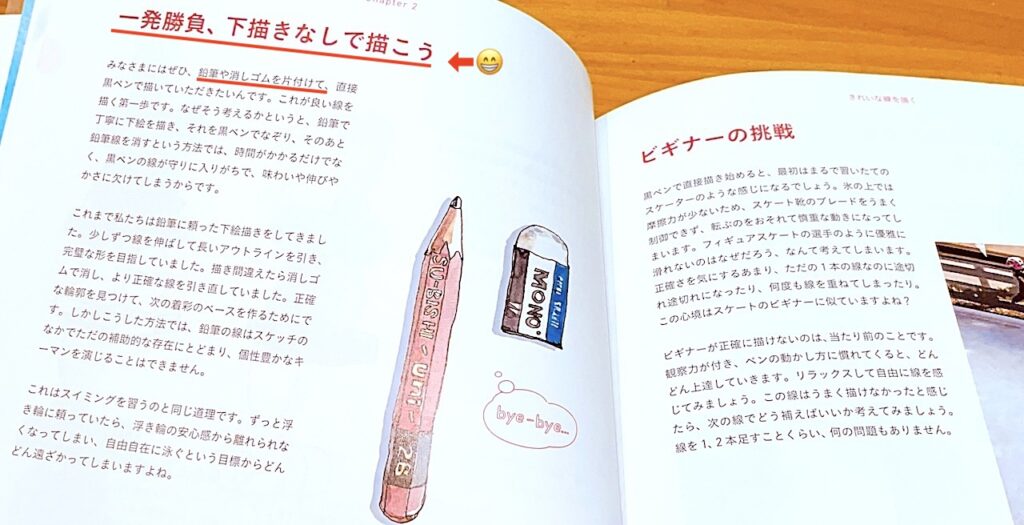 Chapter 2
一発勝負、下描きなしで描こう
みなさまにはぜひ、鉛筆や消しゴムを片付けて、直接
黒ペンで描いていただきたいんです。これが良い線を
描く第一歩です。なぜそう考えるかというと、鉛筆で
丁寧に下絵を描き、それを黒ペンでなぞり、そのあと
鉛筆線を消すという方法では、時間がかかるだけでな
く、黒ペンの線が守りに入りがちで、味わいや伸びや
かさに欠けてしまうからです。
これまで私たちは鉛筆に頼った下絵描きをしてきまし
た。少しずつ線を伸ばして長いアウトラインを引き、
完璧な形を目指していました。描き間違えたら消しゴ
ムで消し、より正確な線を引き直していました。正確
な輪郭を見つけて、次の着彩のベースを作るためにで
す。しかしこうした方法では、鉛筆の線はスケッチの
なかでただの補助的な存在にとどまり、個性豊かなキ
ーマンを演じることはできません。
これはスイミングを習うのと同じ道理です。ずっと浮
き輪に頼っていたら、浮き輪の安心感から離れられな
くなってしまい、自由自在に泳ぐという目標からどん
どん遠ざかってしまいますよね。
SU-BISHI
uni
2B
MONO
bye-bye...
きれいな線を描く
ビギナーの挑戦
黒ペンで直接描き始めると、最初はまるで習いたての
スケーターのような感じになるでしょう。氷の上では
摩擦力が少ないため、スケート靴のブレードをうまく
制御できず、転ぶのをおそれて慎重な動きになってし
まいます。フィギュアスケートの選手のように優雅に
滑れないのはなぜだろう、なんて考えてしまいます。
正確さを気にするあまり、ただの1本の線なのに途切
れ途切れになったり、何度も線を重ねてしまったり。
この心境はスケートのビギナーに似ていますよね？
ビギナーが正確に描けないのは、当たり前のことです。
観察力が付き、ペンの動かし方に慣れてくると、どん
どん上達していきます。リラックスして自由に線を感
じてみましょう。この線はうまく描けなかったと感じ
たら、次の線でどう補えばいいか考えてみましょう。
線を1、2本足すことくらい、何の問題もありません。